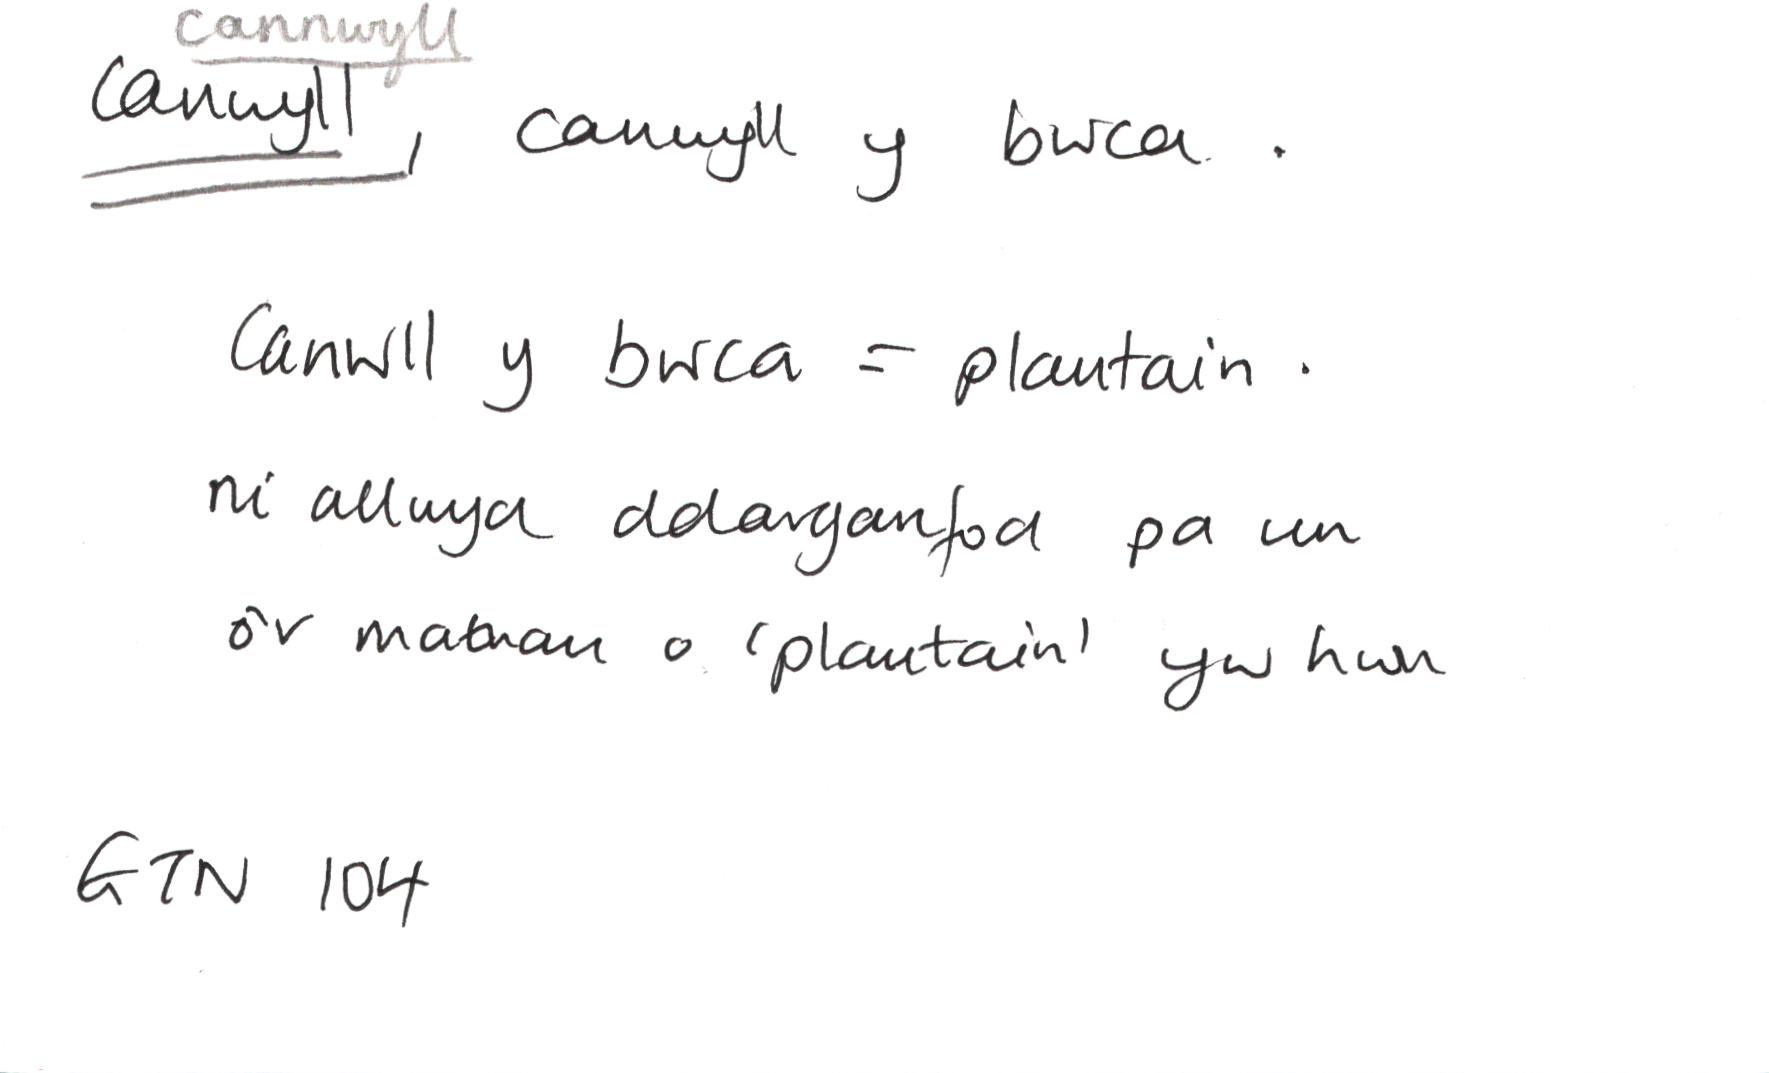 cannwyll
Canwyll, canwyll y bwca.
Canwll y bwca = plantain.
ni allwyd ddarganfod pa un
o'r mathau o 'plantain' yw hwn
GTN 104